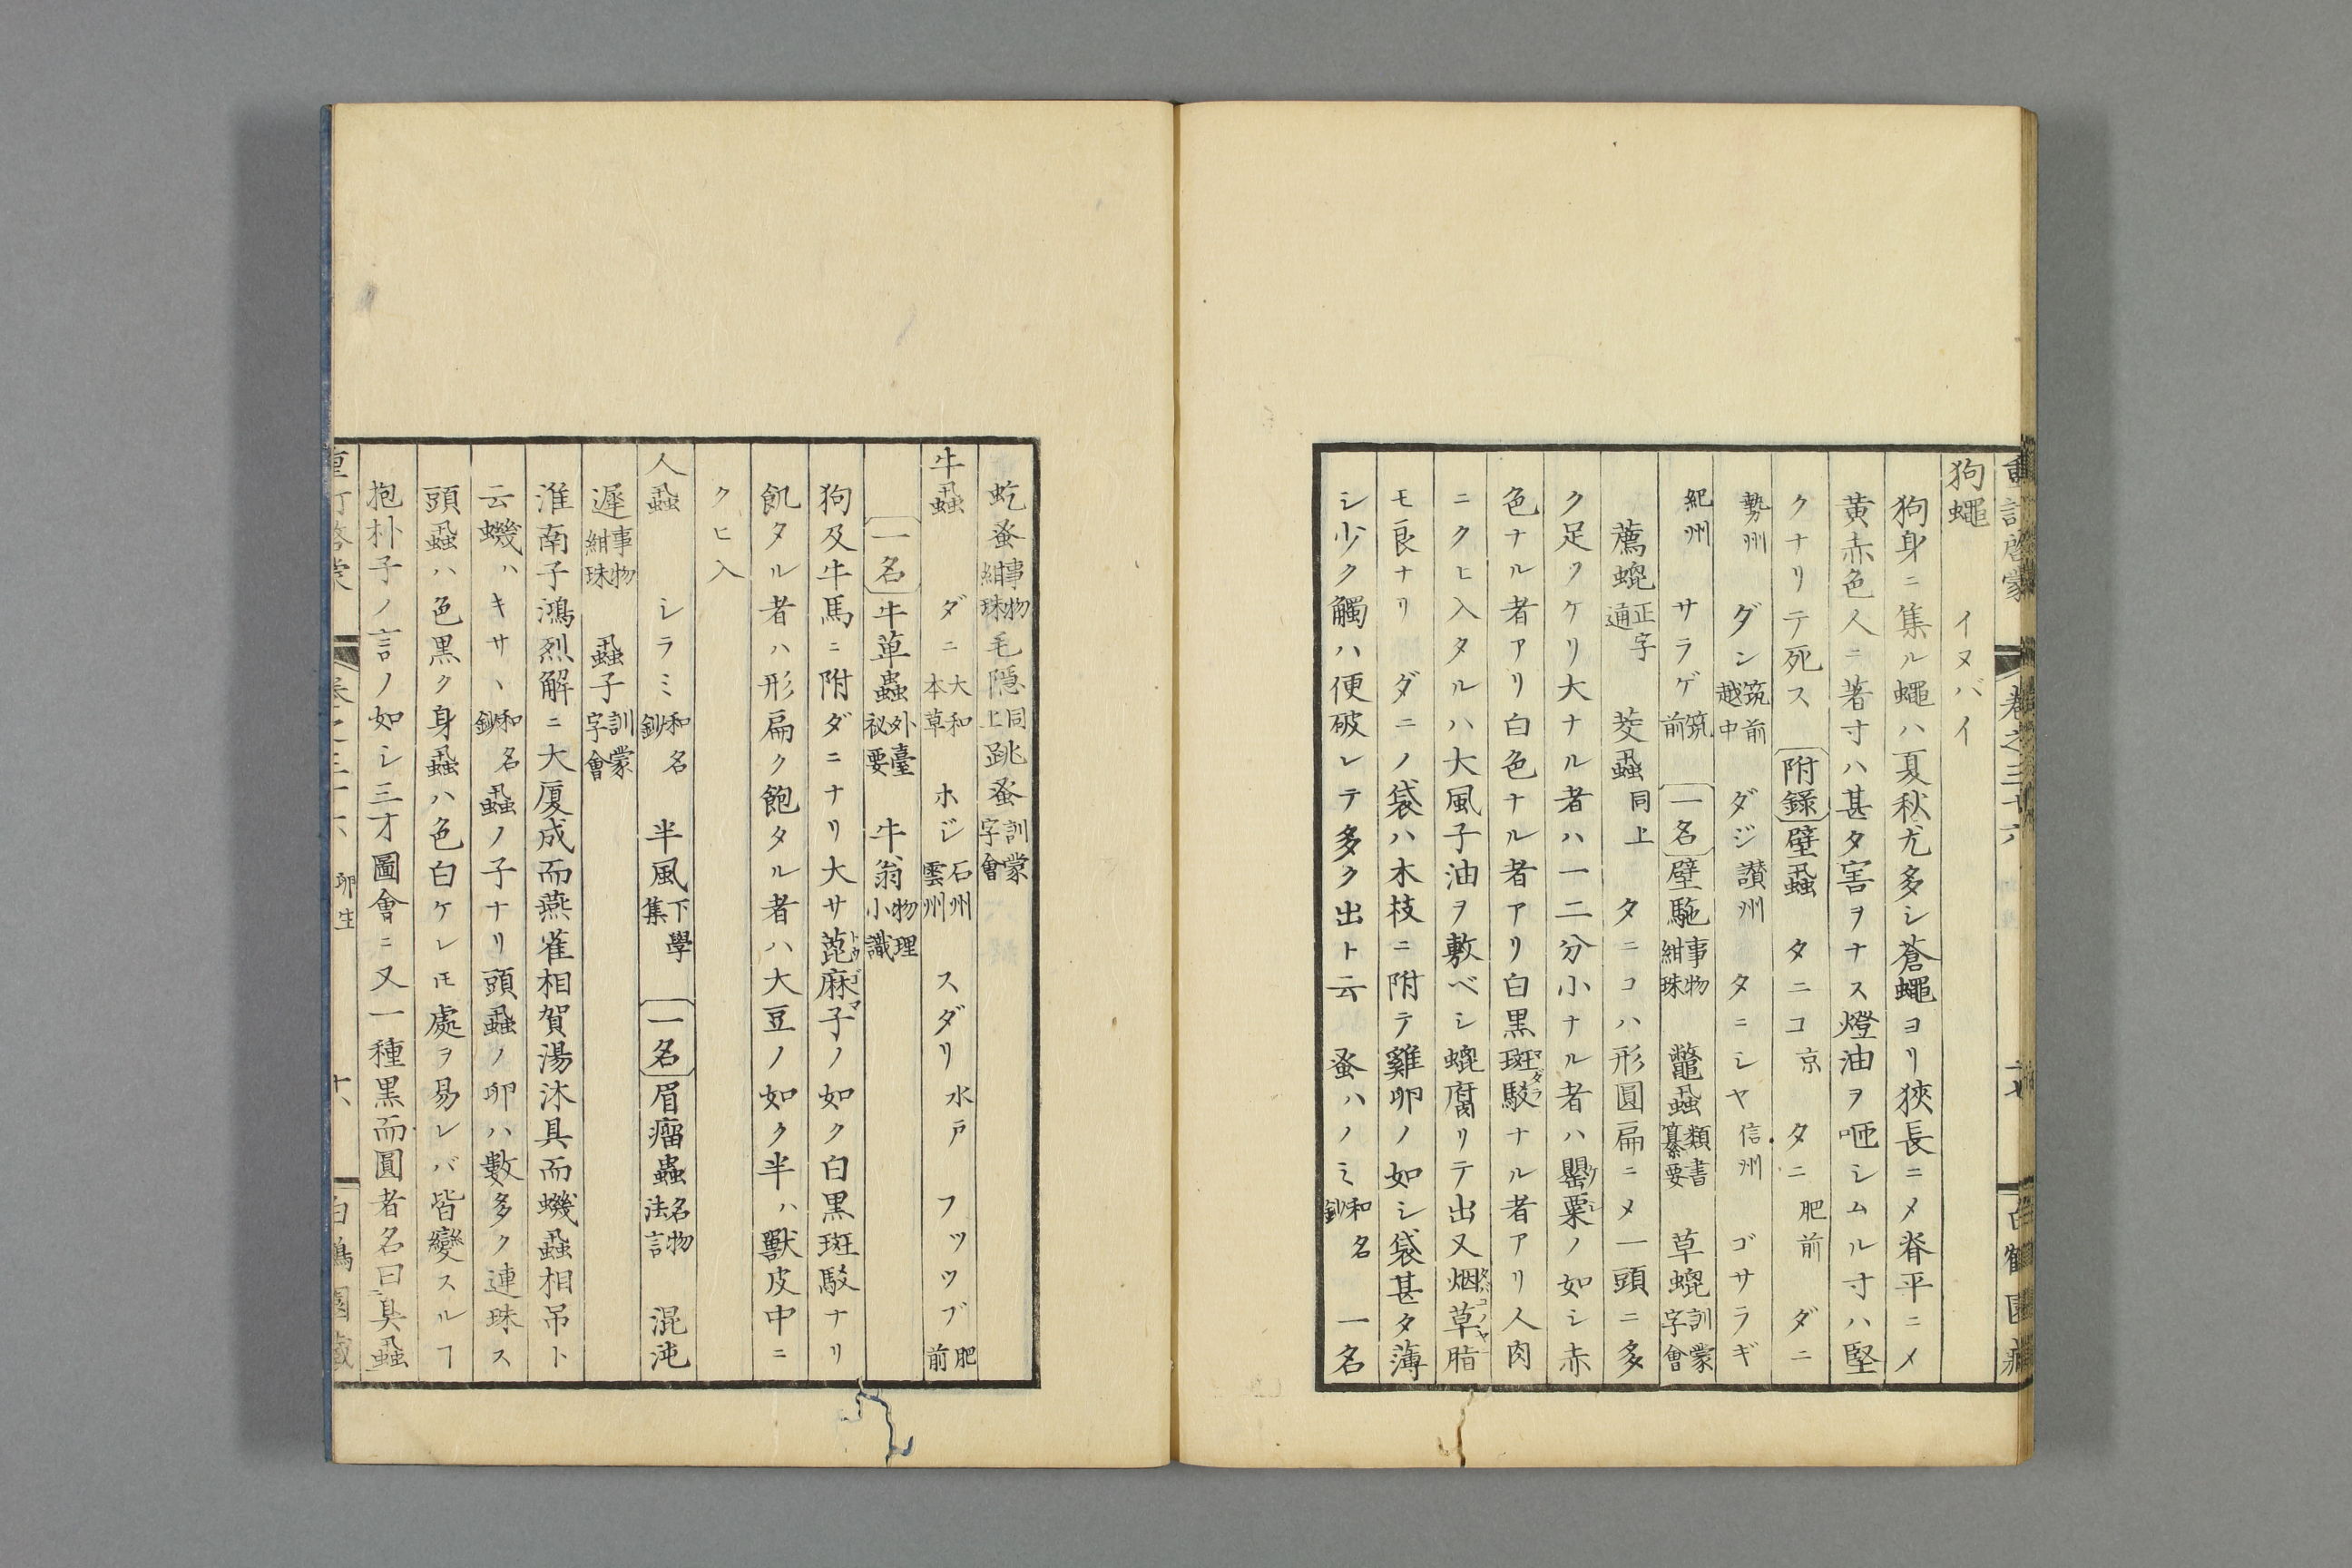 重訂啓蒙 卷之三十六
狗蠅 イヌバイ
狗身ニ集ル蠅ハ夏秋尤多シ蒼蠅ヨリ狹長ニメ脊平ニメ
黄赤色人ニ著寸ハ甚タ害ヲナス燈油ヲ咂シムル寸ハ堅
クナリテ死ス 附錄 壁蝨 タニコ 京 タニ 肥前 ダニ
勢州 ダン 筑前 越中 ダジ 讃州 タニシヤ 信州 ゴサラギ
紀州 サラゲ 筑前 一名 壁駞 事物紺珠 鼈蝨 類書纂要 草螕 訓蒙字會
蔫螕 正字通 茭蝨 同上 タニコハ形圓扁ニメ一頭ニ多
ク足ツケリ大ナル者ハ一二分小ナル者ハ罌粟ノ如シ赤
色ナル者アリ白色ナル者アリ白黒斑駁ナル者アリ人肉
ニクヒ入タルハ大風子油ヲ敷ベシ螕腐リテ出又烟草脂
モ良ナリ ダニノ袋ハ木枝ニ附テ雞卵ノ如シ袋甚タ薄
シ少ク觸ハ便破レテ多ク出ト云 蚤ハノミ 和名鈔 一名
虼蚤 事物紺珠 毛隱 同上 跳蚤 訓蒙字會
牛蝨 ダニ 大和本草 ホジ 石州 雲州 スダリ 水戸 フツツブ 肥前
一名 牛草蟲 外臺祕要 牛翁 物理小識
狗及牛馬ニ附ダニナリ大サ萞麻子ノ如ク白黒斑駁ナリ
飢タル者ハ形扁ク飽タル者ハ大豆ノ如ク半ハ獸皮中ニ
クヒ入
人蝨 シラミ 和名鈔 半風 下學集 一名 眉瘤蟲 名物法言 混沌
遲 事物紺珠 蝨子 訓蒙字會
淮南子鴻烈解ニ大厦成而燕雀相賀湯沐具而蟣蝨相吊ト
云蟣ハキサヽ 和名鈔 蝨ノ子ナリ頭蝨ノ卵ハ數多ク連珠ス
頭蝨ハ色黒ク身蝨ハ色白ケレ𪜈處ヲ易レバ皆變スルヿ
抱朴子ノ言ノ如シ三才圖會ニ又一種黒而圓者名曰臭蝨
卵生